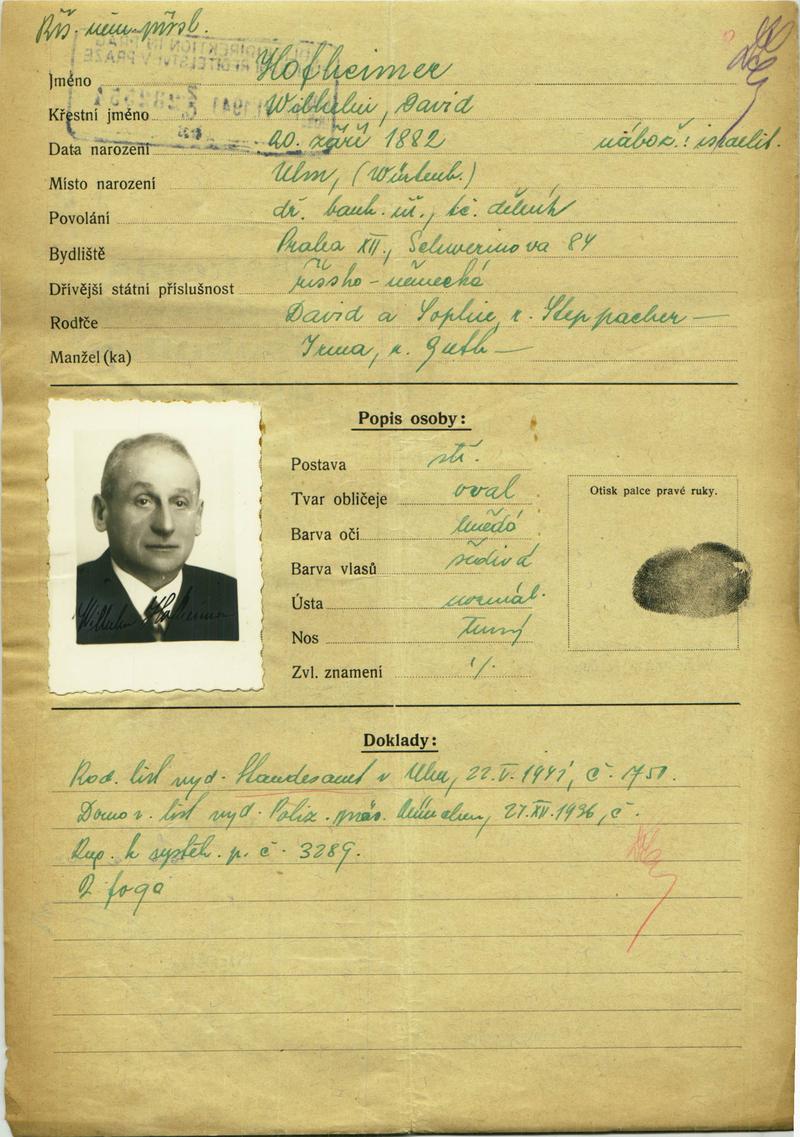 Říš. něm. přísl.
Jméno Hofheimer
Křestní jméno Wilhelm, David
Data narození 20. září 1882 nábož.: israelit.
Místo narození Ulm, (Würtemb.)
Povolání dř. bank. úř., tč. dělník
Bydliště Praha XII., Schwerinova 84
Dřívější státní příslušnost říšsko-německá
Rodiče David a Sophie, r. Steppacher —
Manžel(ka) Irma, r. Guth —
Popis osoby:
Postava stř.
Tvar obličeje oval
Barva očí hnědá
Barva vlasů šedivá
Ústa normál.
Nos
Zvl. znamení ·/.
Otisk palce pravé ruky.
Wilhelm Hofheimer
Doklady:
Rod. list vyd. Standesamt v Ulm, 22.V.1941, č. 1750.
Domov. list vyd. Poliz. präs. München, 27.XII.1936, č.
k č. 3289.
2 foga